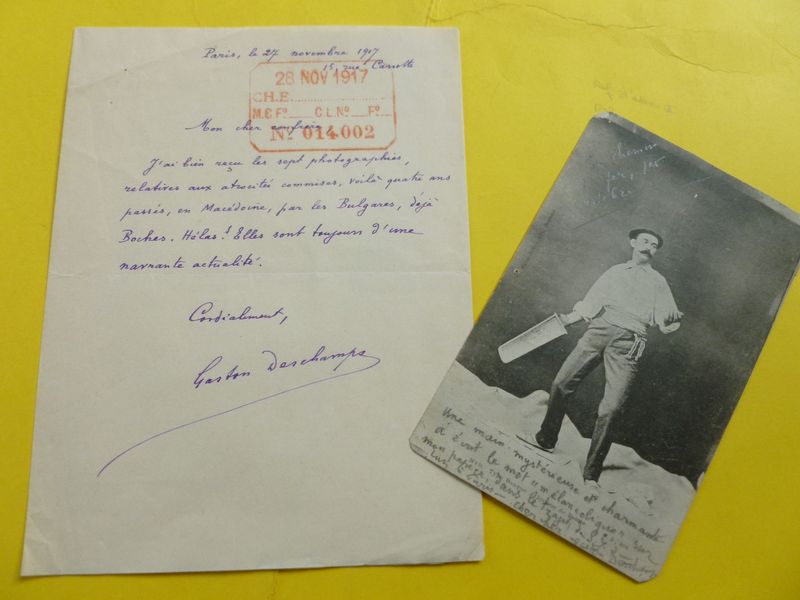 Paris, le 27 novembre 1917
15, rue
28 NOV 1917
CH.E.
M.C.Fº C.L.Nº Fº
Nº 014.002
Mon cher confrère
J'ai bien reçu les sept photographies,
relatives aux atrocités commises, voilà quatre ans
passés, en Macédoine, par les Bulgares, déjà
Boches. Hélas! Elles sont toujours d'une
navrante actualité.
Cordialement,
Gaston Deschamps
Une main mystérieuse et charmante
a écrit le mot "mélancolique" sur
mon dans le trajet de
à Paris